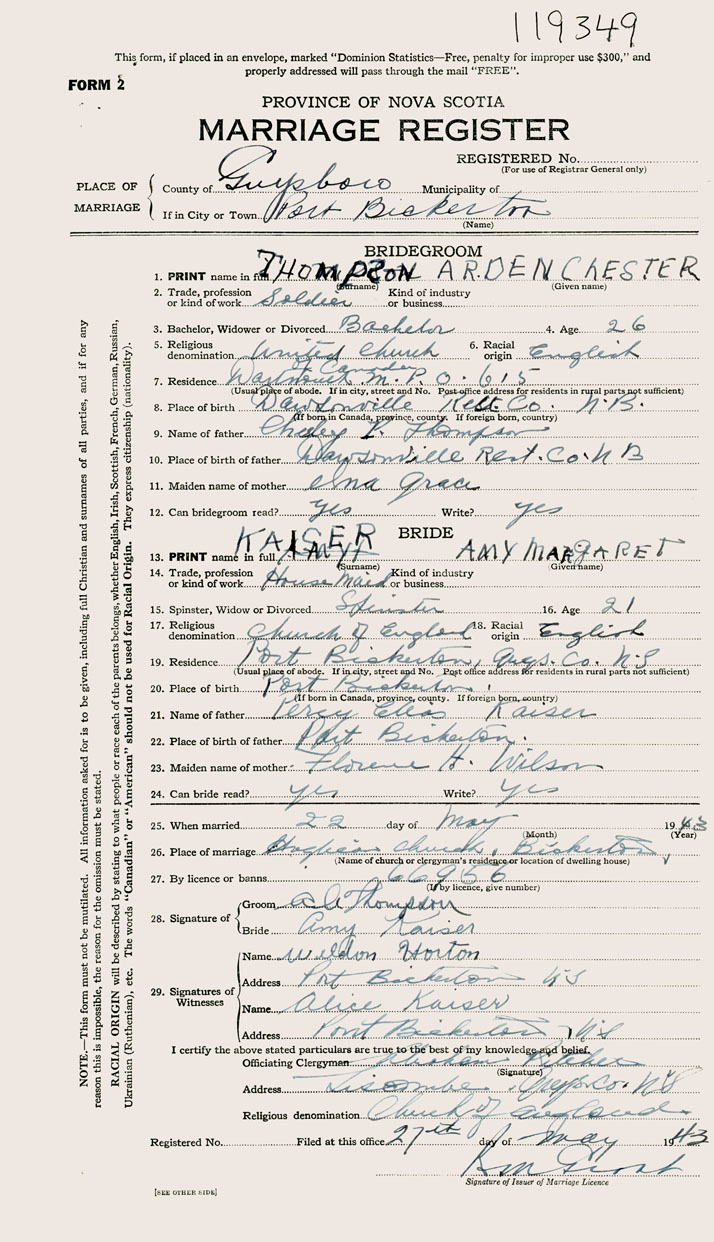 119349
This form, if placed in an envelope, marked "Dominion Statistics—Free, penalty for improper use $300," and
properly addressed will pass through the mail "FREE".
FORM 2
PROVINCE OF NOVA SCOTIA
MARRIAGE REGISTER
REGISTERED No.
(For use of Registrar General only)
PLACE OF MARRIAGE
County of Guysboro Municipality of
If in City or Town Port Bickerton
(Name)
BRIDEGROOM
1. PRINT name in full THOMPSON ARDEN CHESTER
(Surname) (Given name)
2. Trade, profession or kind of work Soldier Kind of industry or business
3. Bachelor, Widower or Divorced Bachelor 4. Age 26
5. Religious denomination United Church of Canada 6. Racial origin English
7. Residence M.P.O. 615
(Usual place of abode. If in city, street and No. Post office address for residents in rural parts not sufficient)
8. Place of birth Dawsonville Rest. Co. N.B.
(If born in Canada, province, county. If foreign born, country)
9. Name of father Thompson
10. Place of birth of father Dawsonville Rest. Co. N B
11. Maiden name of mother Edna Grace
12. Can bridegroom read? yes Write? yes
BRIDE
13. PRINT name in full KAISER AMY MARGARET
(Surname) (Given name)
14. Trade, profession or kind of work House Maid Kind of industry or business
15. Spinster, Widow or Divorced Spinster 16. Age 21
17. Religious denomination Church of England 18. Racial origin English
19. Residence Port Bickerton, Guys. Co. N.S
(Usual place of abode. If in city, street and No. Post office address for residents in rural parts not sufficient)
20. Place of birth Port Bickerton
(If born in Canada, province, county. If foreign born, country)
21. Name of father Percy Elias Kaiser
22. Place of birth of father Port Bickerton.
23. Maiden name of mother Florence H. Wilson
24. Can bride read? yes Write? yes
25. When married 22 day of May 1943
(Month) (Year)
26. Place of marriage Church, Bickerton
(Name of church or clergyman's residence or location of dwelling house)
27. By licence or banns 66956
(If by licence, give number)
28. Signature of
Groom A C Thompson
Bride Amy Kaiser
29. Signatures of Witnesses
Name Weldon Horton
Address Port Bickerton NS
Name Alice Kaiser
Address Port Bickerton, N.S
I certify the above stated particulars are true to the best of my knowledge and belief.
Officiating Clergyman
(Signature)
Address Liscombe Guys. Co. NS
Religious denomination Church of England
Registered No. Filed at this office 27th day of May 1943
Signature of Issuer of Marriage Licence
[SEE OTHER SIDE]
NOTE.—This form must not be mutilated. All information asked for is to be given, including full Christian and surnames of all parties, and if for any
reason this is impossible, the reason for the omission must be stated.
RACIAL ORIGIN will be described by stating to what people or race each of the parents belongs, whether English, Irish, Scottish, French, German, Russian,
Ukrainian (Ruthenian), etc. The words "Canadian" or "American" should not be used for Racial Origin. They express citizenship (nationality).